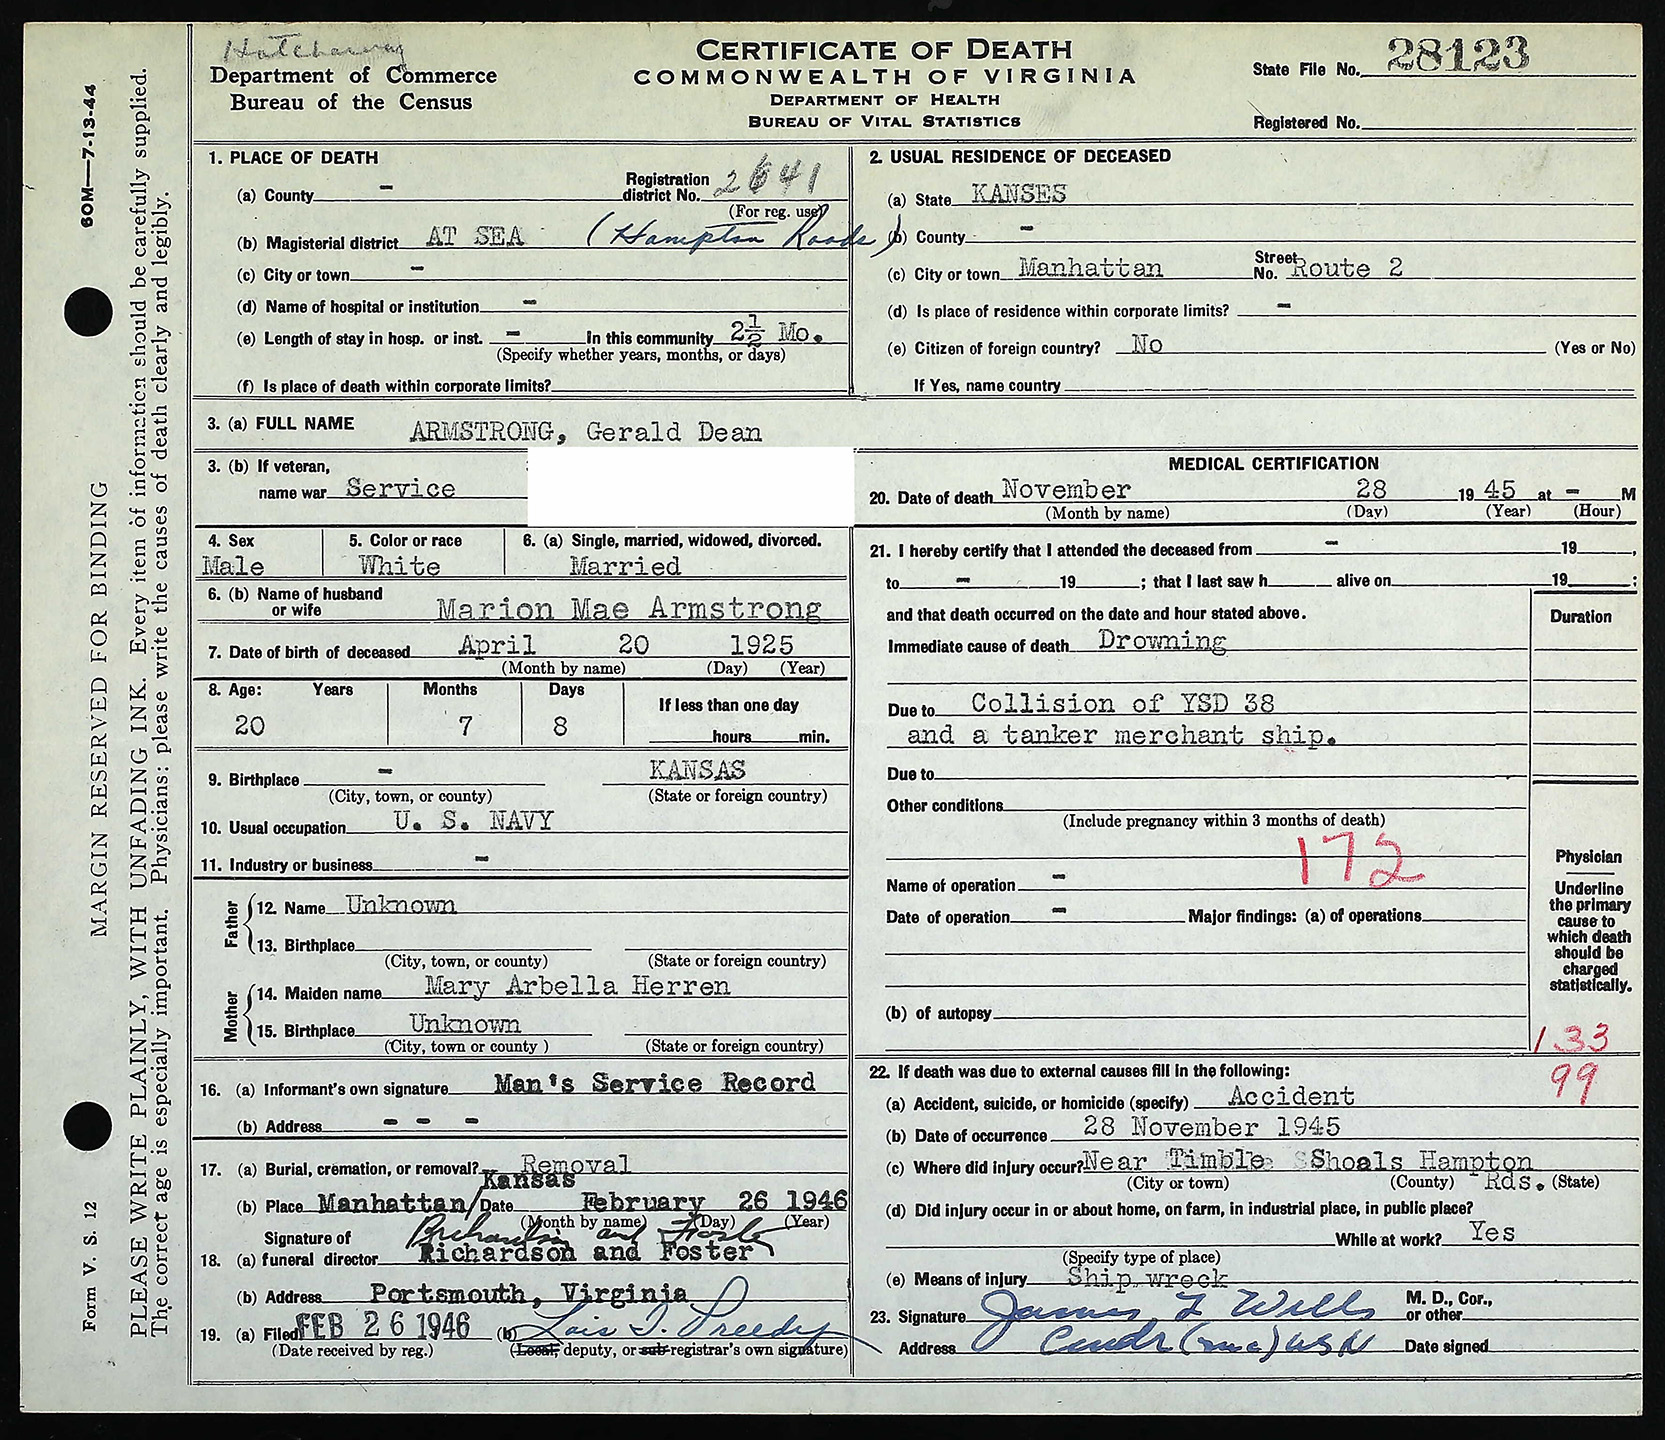 Department of Commerce
Bureau of the Census
CERTIFICATE OF DEATH
COMMONWEALTH OF VIRGINIA
DEPARTMENT OF HEALTH
BUREAU OF VITAL STATISTICS
State File No. 28123
Registered No.
60M—7-13-44
MARGIN RESERVED FOR BINDING
Form V. S. 12
PLEASE WRITE PLAINLY, WITH UNFADING INK. Every item of information should be carefully supplied.
The correct age is especially important. Physicians: please write the causes of death clearly and legibly.
1. PLACE OF DEATH
(a) County -
Registration district No. 2641
(For reg. use)
(b) Magisterial district AT SEA (Hampton Roads)
(c) City or town -
(d) Name of hospital or institution -
(e) Length of stay in hosp. or inst. - In this community 2½ Mo.
(Specify whether years, months, or days)
(f) Is place of death within corporate limits?
2. USUAL RESIDENCE OF DECEASED
(a) State KANSES
(b) County -
(c) City or town Manhattan Street No. Route 2
(d) Is place of residence within corporate limits? -
(e) Citizen of foreign country? No (Yes or No)
If Yes, name country
3. (a) FULL NAME ARMSTRONG, Gerald Dean
3. (b) If veteran,
name war Service
4. Sex
Male
5. Color or race
White
6. (a) Single, married, widowed, divorced.
Married
6. (b) Name of husband
or wife Marion Mae Armstrong
7. Date of birth of deceased April 20 1925
(Month by name) (Day) (Year)
8. Age: Years Months Days
20 7 8
If less than one day
hours min.
9. Birthplace - KANSAS
(City, town, or county) (State or foreign country)
10. Usual occupation U. S. NAVY
11. Industry or business -
Father
12. Name Unknown
13. Birthplace
(City, town, or county) (State or foreign country)
Mother
14. Maiden name Mary Arbella Herren
15. Birthplace Unknown
(City, town or county ) (State or foreign country)
16. (a) Informant's own signature Man's Service Record
(b) Address - - -
17. (a) Burial, cremation, or removal? Removal
Kansas
(b) Place Manhattan/ Date February 26 1946
(Month by name) (Day) (Year)
Signature of Richardson and Foster
18. (a) funeral director Richardson and Foster
(b) Address Portsmouth, Virginia
19. (a) Filed FEB 26 1946 (b) Lois
(Date received by reg.) (Local, deputy, or sub-registrar's own signature)
MEDICAL CERTIFICATION
20. Date of death November 28 1945 at - M
(Month by name) (Day) (Year) (Hour)
21. I hereby certify that I attended the deceased from - 19 ,
to - 19 ; that I last saw h alive on 19 ;
and that death occurred on the date and hour stated above.
Duration
Immediate cause of death Drowning
Due to Collision of YSD 38
and a tanker merchant ship.
Due to
Other conditions
(Include pregnancy within 3 months of death)
172
Name of operation -
Date of operation - Major findings: (a) of operations
(b) of autopsy
Physician
Underline
the primary
cause to
which death
should be
charged
statistically.
133
99
22. If death was due to external causes fill in the following:
(a) Accident, suicide, or homicide (specify) Accident
(b) Date of occurrence 28 November 1945
(c) Where did injury occur? Near Timble Shoals Hampton
(City or town) (County) Rds. (State)
(d) Did injury occur in or about home, on farm, in industrial place, in public place?
While at work? Yes
(Specify type of place)
(e) Means of injury Ship wreck
23. Signature James T Wells M. D., Cor., or other
Address Cmdr (mc) USN Date signed